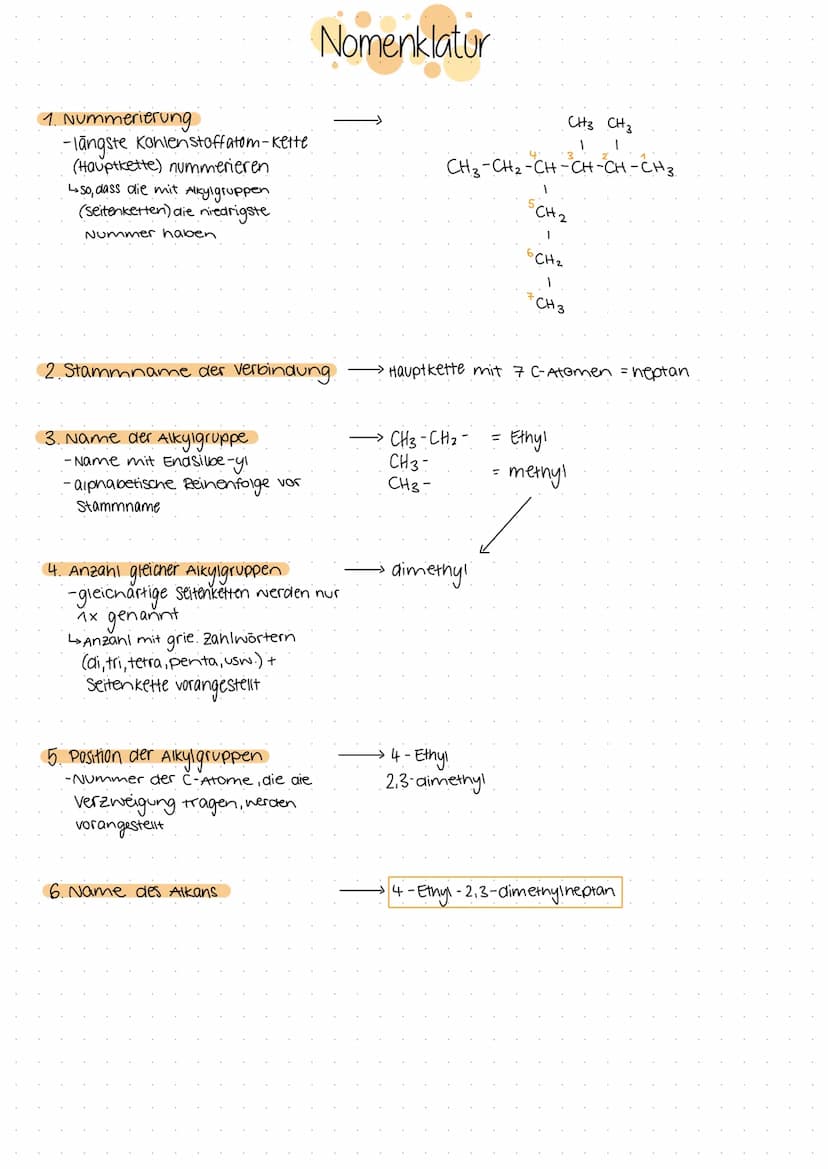 Nomenklatur
1. Nummerierung
-längste Kohlenstoffatom-Kette
(Hauptkette) nummerieren
↳so, dass die mit Alkylgruppen
(Seitenketten) die niedrigste
Nummer haben
CH₃ CH₃
4 3 2 1
CH₃-CH₂-CH-CH-CH-CH₃
5 CH₂
6 CH₂
7 CH₃
2. Stammname der Verbindung → Hauptkette mit 7 C-Atomen = heptan
3. Name der Alkylgruppe → CH₃-CH₂- = Ethyl
-Name mit Endsilbe -yl CH₃-
-alphabetische Reihenfolge vor CH₃- = methyl
Stammname
4. Anzahl gleicher Alkylgruppen → dimethyl
-gleichartige Seitenketten werden nur
1x genannt
↳Anzahl mit grie. Zahlwörtern
(di, tri, tetra, penta, usw.) +
Seitenkette vorangestellt
5. Position der Alkylgruppen → 4-Ethyl
-Nummer der C-Atome, die die 2,3-dimethyl
Verzweigung tragen, werden
vorangestellt
6. Name des Alkans → 4-Ethyl-2,3-dimethylheptan